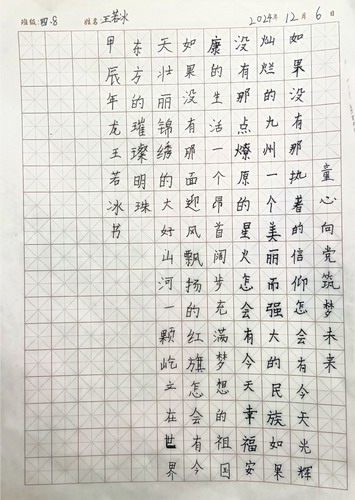 班级:四.8 姓名 王若冰 2024年12月6日
童心向党筑梦未来
如果没有那执著的信仰怎会有今天光辉
灿烂的九州一个美丽而强大的民族如果
没有那点燎原的星火怎会有今天幸福安
康的生活一个昂首阔步充满梦想的祖国
如果没有那面迎风飘扬的红旗怎会有今
天壮丽锦绣的大好山河一颗屹立在世界
东方的璀璨明珠
甲辰年龙王若冰书